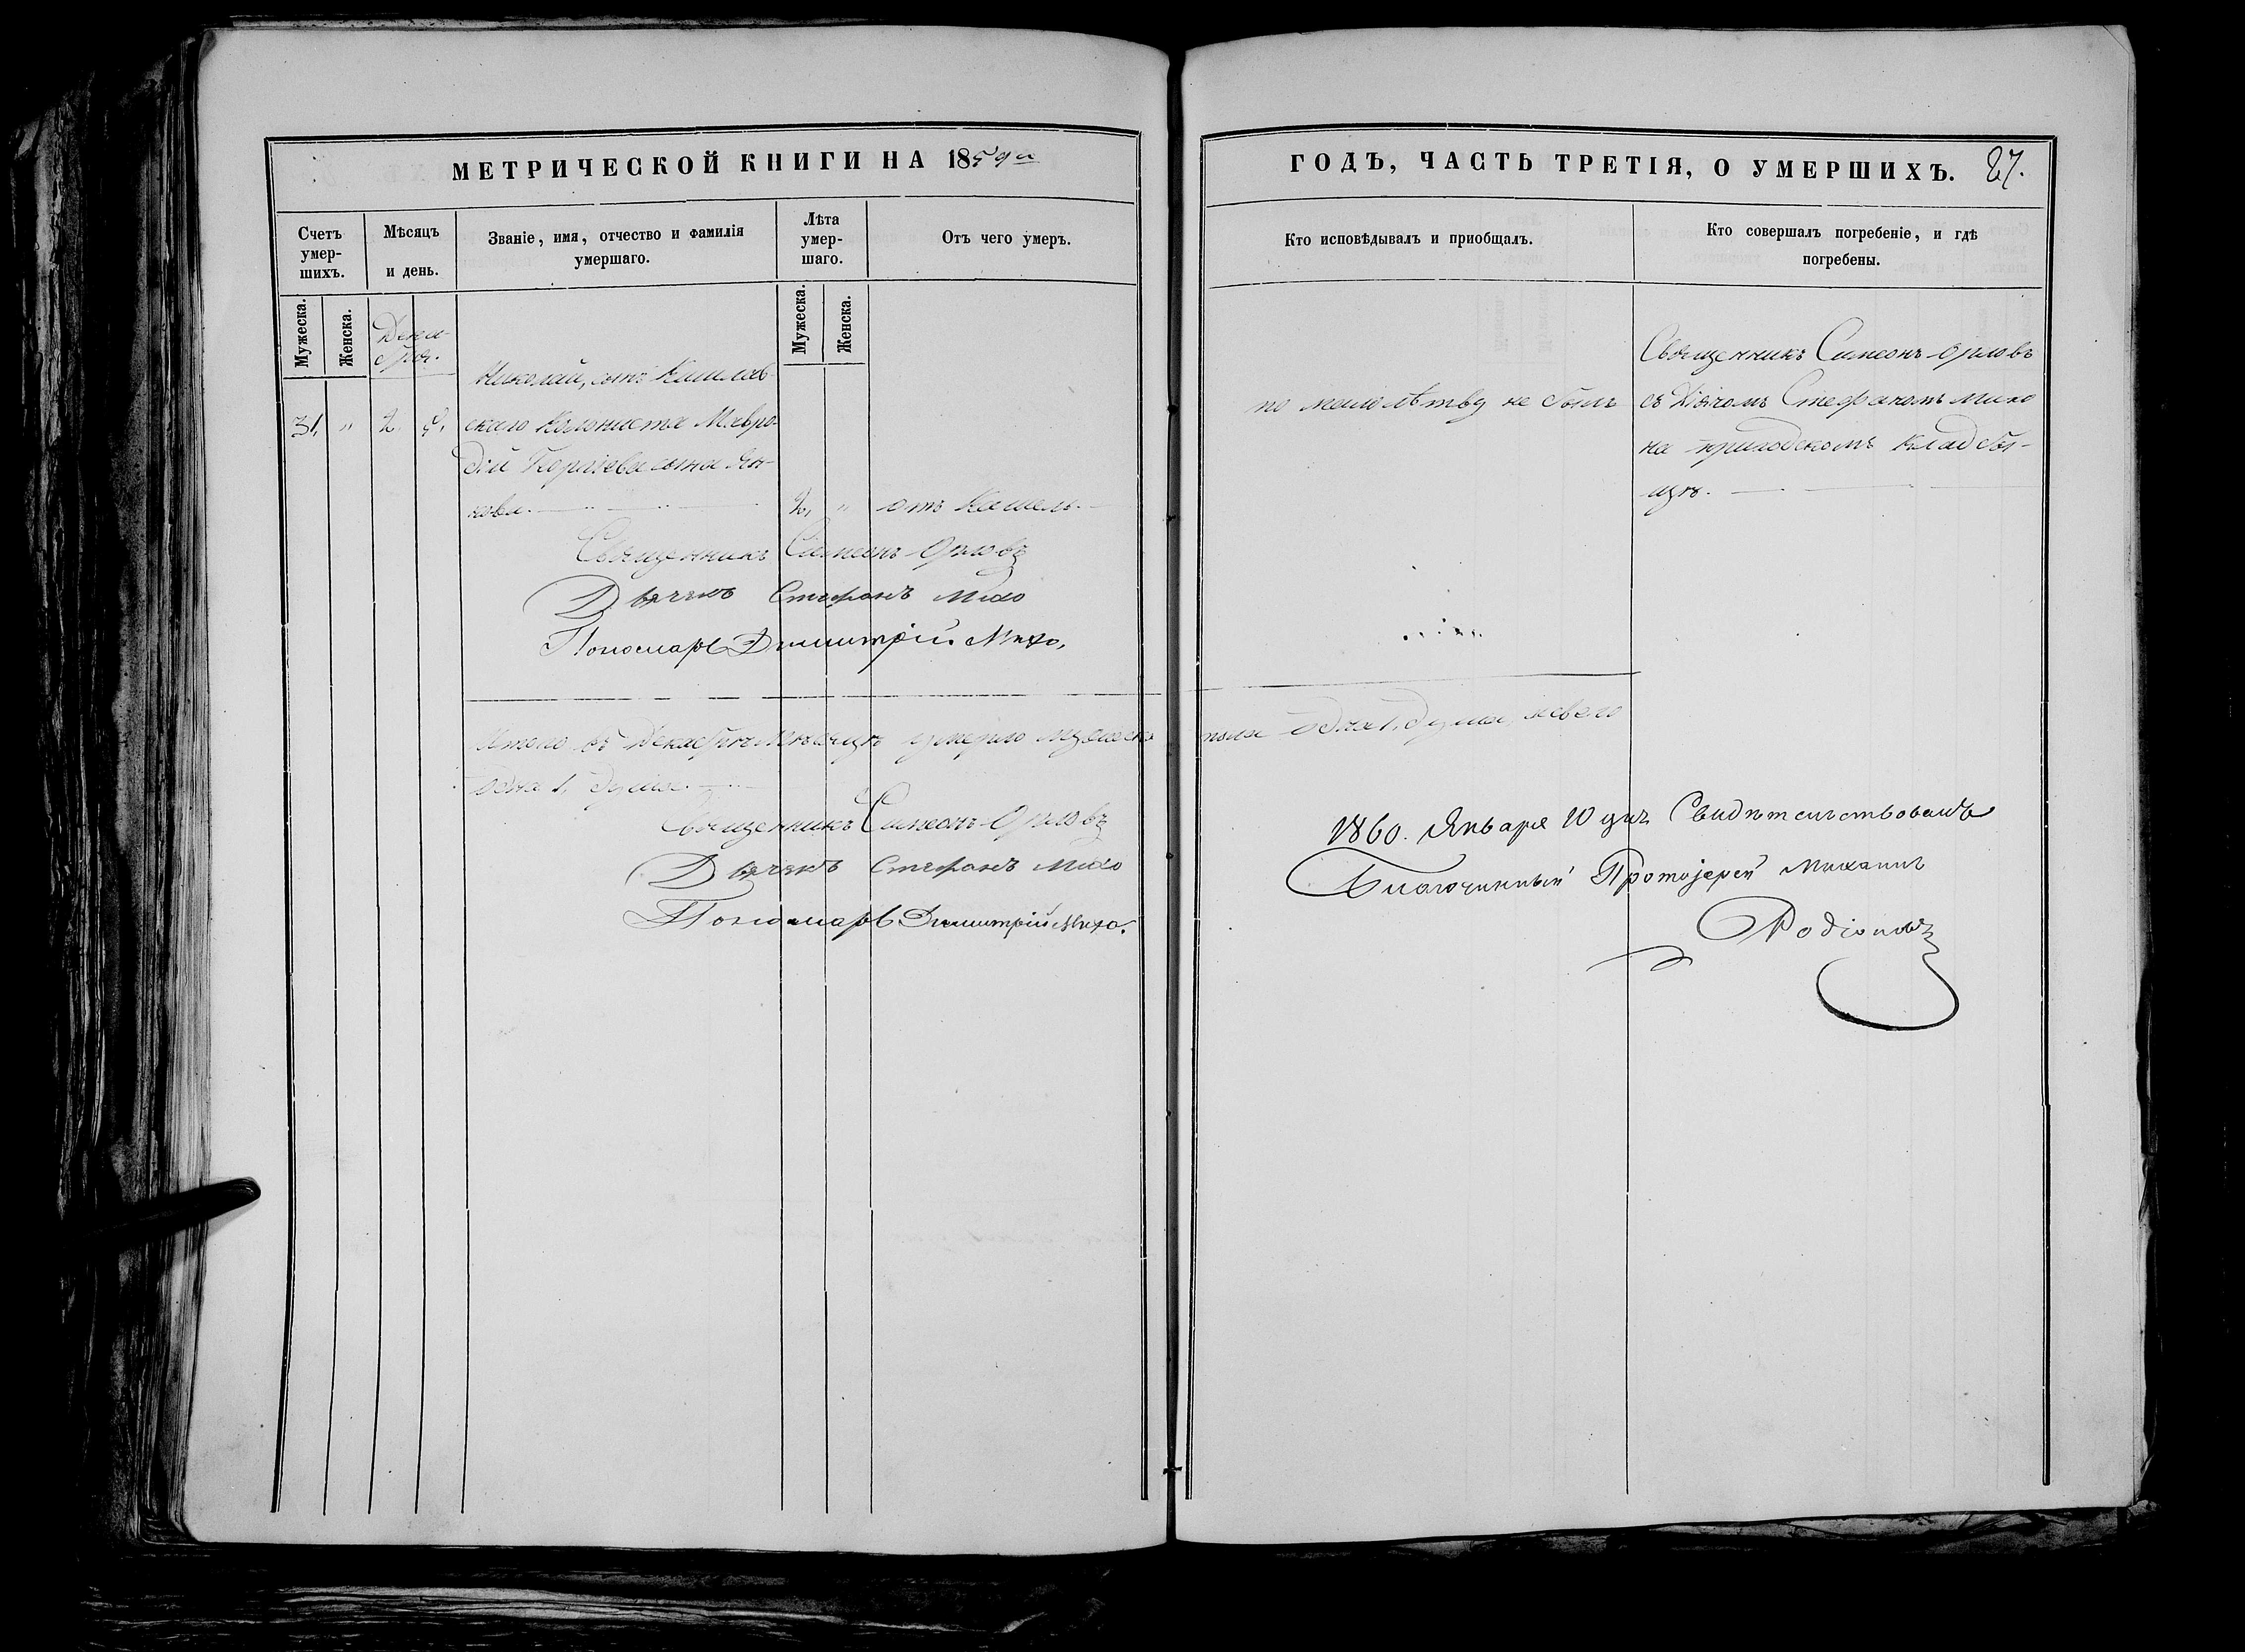 МЕТРИЧЕСКОЙ КНИГИ НА 1859й
ГОДЪ, ЧАСТЬ ТРЕТІЯ, О УМЕРШИХЪ. 27.
Счетъ умер-
шихъ.
Мѣсяцъ
и день.
Званіе, имя, отчество и фамилія
умершаго.
Лѣта
умер-
шаго.
Отъ чего умеръ.
Кто исповѣдывалъ и приобщалъ.
Кто совершалъ погребеніе, и гдѣ
погребены.
Мужеска.
Женска.
Дека-
бря.
Мужеска.
Женска.
Николай, сынъ
31. " 2.
скаго колониста Мавро-
дій Георгіева сына Ян-
кова. 2, " отъ кашель.
по малолѣтву не былъ
Священникъ Симеонъ Орловъ
съ Дьячомъ Стефаномъ Михо
на приходскомъ кладби-
щѣ.
Священникъ Симеонъ Орловъ
Дьячекъ Стефанъ Михо
Пономарь Димитрій Михо,
Итого въ Декабрѣ Мѣсяцѣ умерло мужеска пола одна 1, душа, всего
одна 1, душа.
Священникъ Симеонъ Орловъ
Дьячекъ Стефанъ Михо
Пономарь Димитрій Михо.
1860. Января 10 дня Свидѣтельствовалъ
Благочинный Протоіерей Михаилъ
Родіоновъ